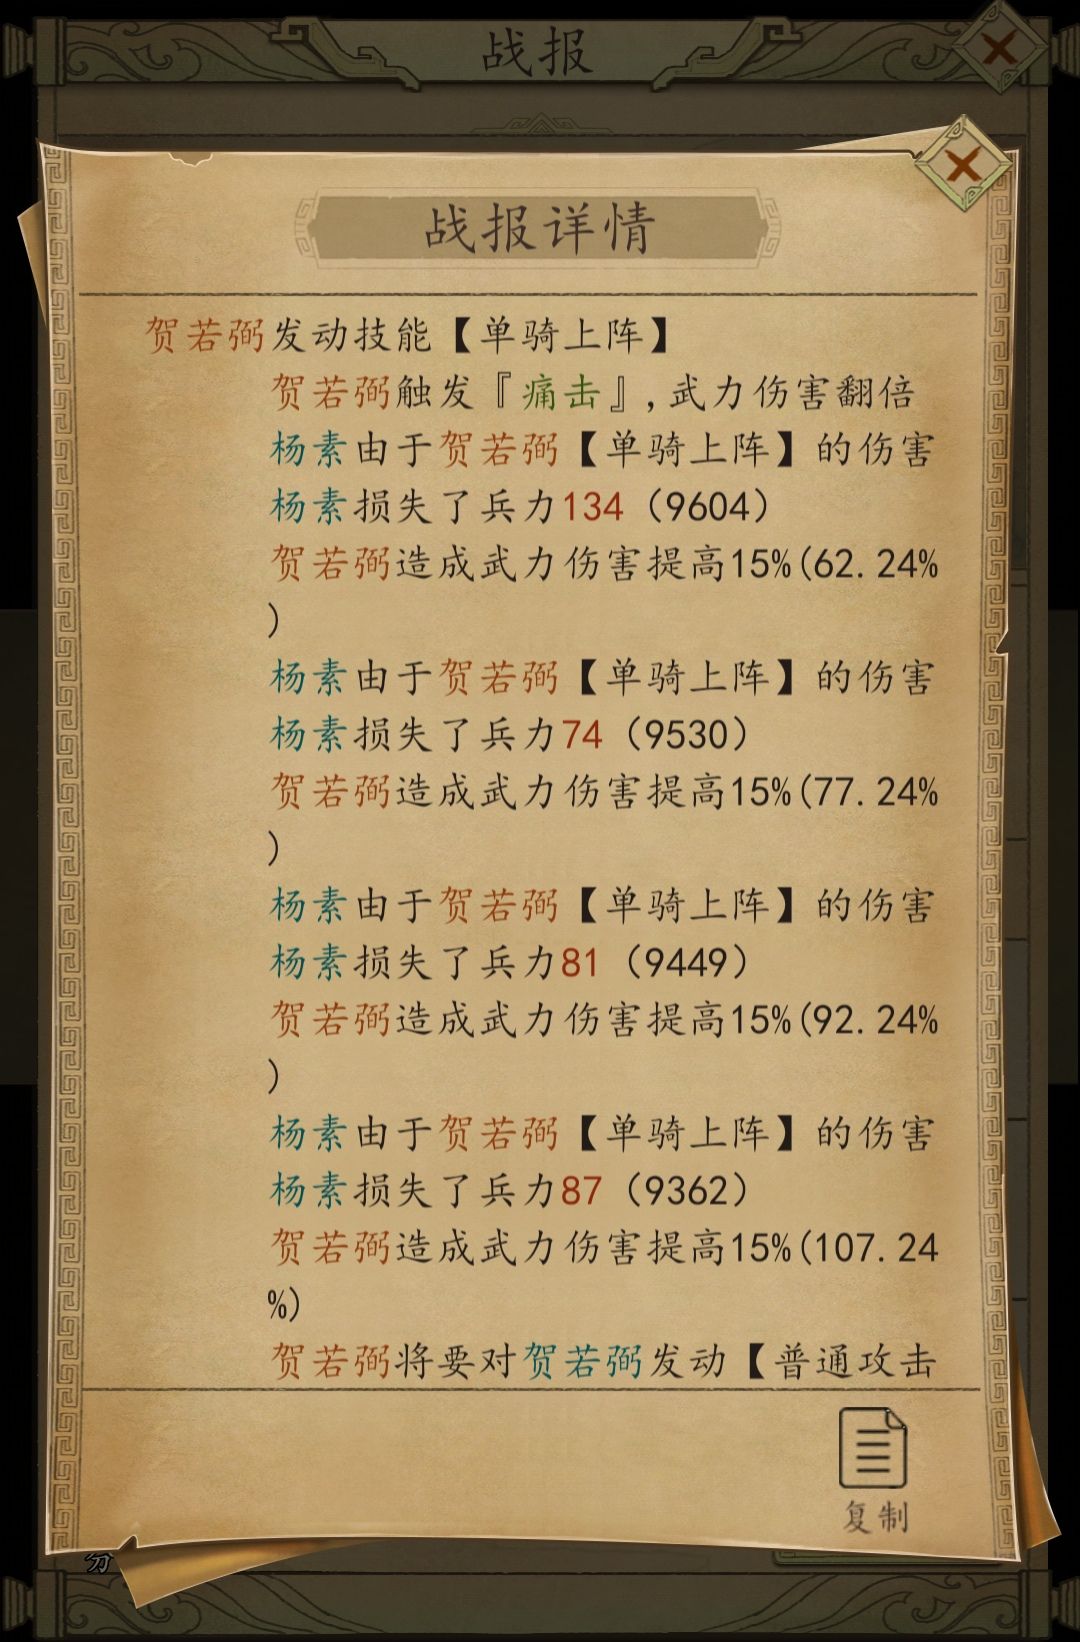 战报
战报详情
贺若弼发动技能【单骑上阵】
贺若弼触发『痛击』,武力伤害翻倍
杨素由于贺若弼【单骑上阵】的伤害
杨素损失了兵力134（9604）
贺若弼造成武力伤害提高15%(62.24%
)
杨素由于贺若弼【单骑上阵】的伤害
杨素损失了兵力74（9530）
贺若弼造成武力伤害提高15%(77.24%
)
杨素由于贺若弼【单骑上阵】的伤害
杨素损失了兵力81（9449）
贺若弼造成武力伤害提高15%(92.24%
)
杨素由于贺若弼【单骑上阵】的伤害
杨素损失了兵力87（9362）
贺若弼造成武力伤害提高15%(107.24
%)
贺若弼将要对贺若弼发动【普通攻击
复制